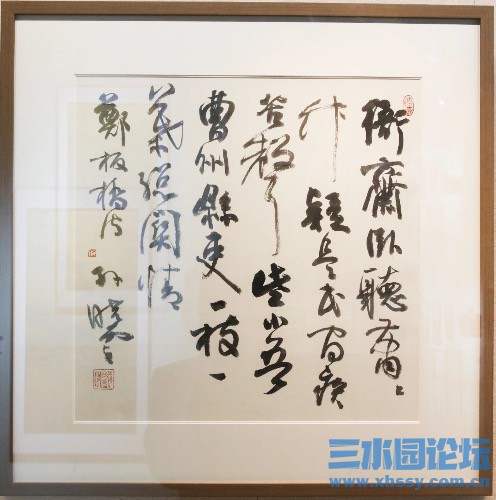 衙齋卧聽蕭々
竹疑是民间疾
苦聲些小吾
曹州縣吏一枝一
葉總關情
鄭板橋诗 孙曉云
三水园论坛
www.xhssy.com.cn